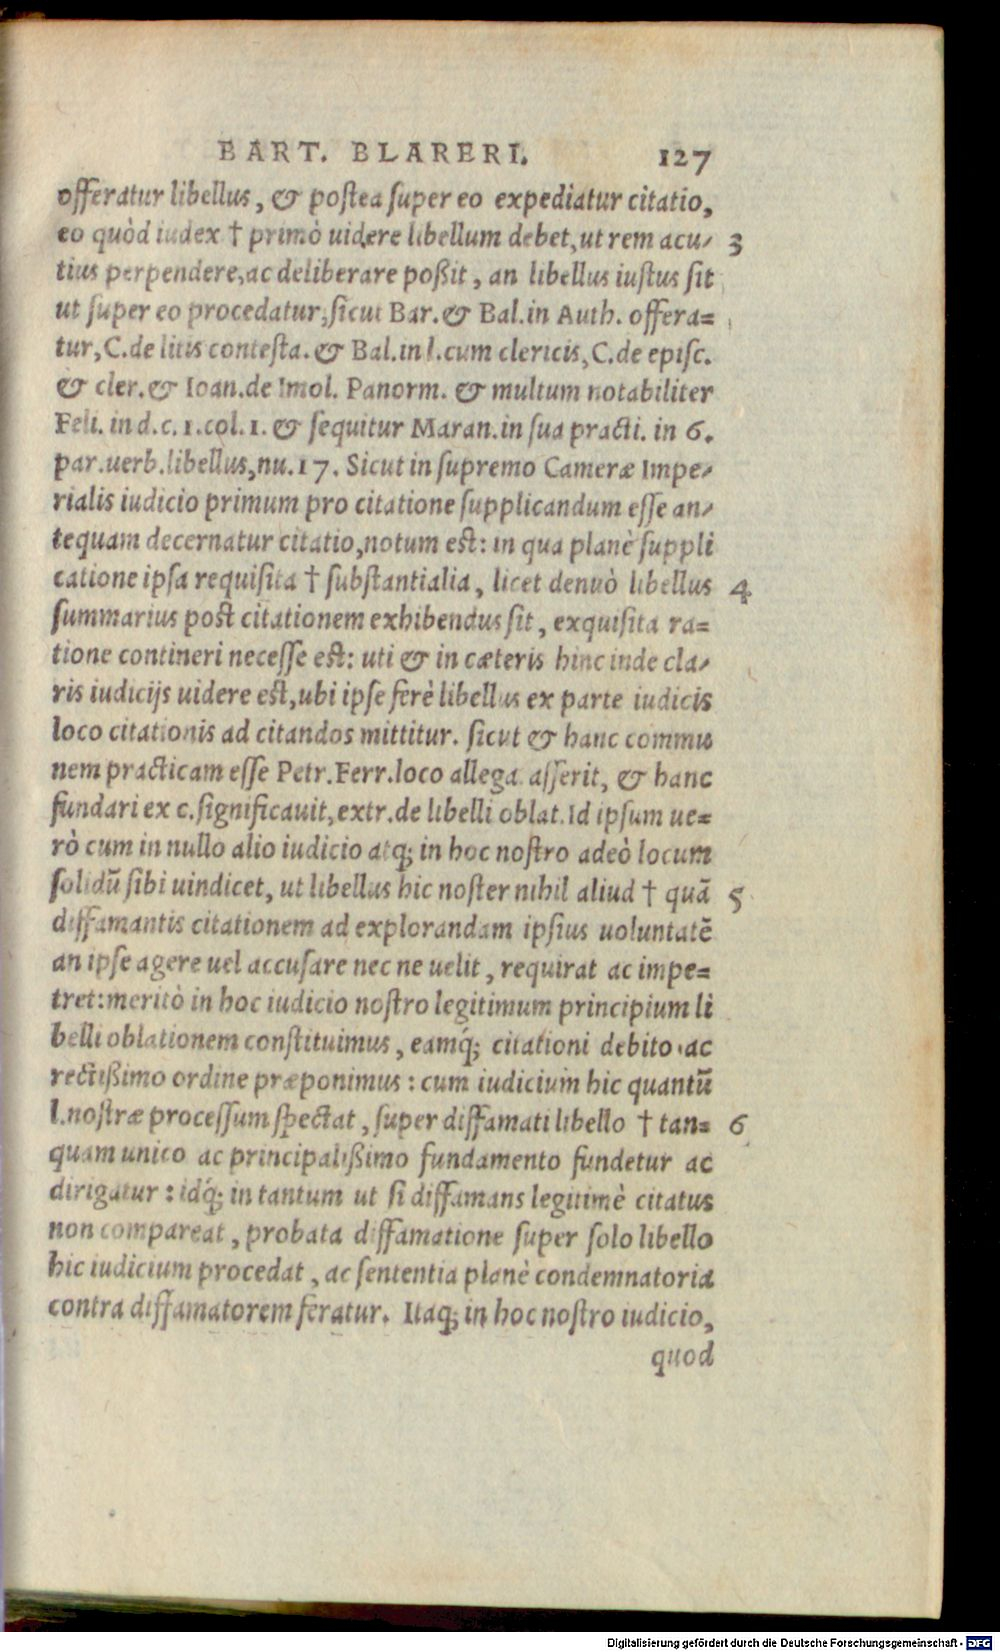 BART. BLARERI. 127
offeratur libellus, & postea super eo expediatur citatio,
eo quòd iudex † primò uidere libellum debet, ut rem acu- 3
tius perpendere, ac deliberare poßit, an libellus iustus sit
ut super eo procedatur, sicut Bar. & Bal. in Auth. offera=
tur, C. de litis contesta. & Bal. in l. cum clericis, C. de episc.
& cler. & Ioan. de Imol. Panorm. & multum notabiliter
Feli. in d. c. 1. col. 1. & sequitur Maran. in sua practi. in 6.
par. uerb. libellus, nu. 17. Sicut in supremo Cameræ Impe-
rialis iudicio primum pro citatione supplicandum esse an-
tequam decernatur citatio, notum est: in qua planè suppli
catione ipsa requisita † substantialia, licet denuò libellus 4
summarius post citationem exhibendus sit, exquisita ra=
tione contineri necesse est: uti & in cæteris hinc inde cla-
ris iudicijs uidere est, ubi ipse ferè libellus ex parte iudicis
loco citationis ad citandos mittitur. sicut & hanc commu
nem practicam esse Petr. Ferr. loco allega. asserit, & hanc
fundari ex c. significauit, extr. de libelli oblat. Id ipsum ue=
rò cum in nullo alio iudicio atq; in hoc nostro adeò locum
solidũ sibi uindicet, ut libellus hic noster nihil aliud † quã 5
diffamantis citationem ad explorandam ipsius uoluntatẽ
an ipse agere uel accusare nec ne uelit, requirat ac impe=
tret: meritò in hoc iudicio nostro legitimum principium li
belli oblationem constituimus, eamq́; citationi debito ac
rectißimo ordine præponimus: cum iudicium hic quantũ
l. nostræ processum spectat, super diffamati libello † tan= 6
quam unico ac principalißimo fundamento fundetur ac
dirigatur: idq́; in tantum ut si diffamans legitimè citatus
non compareat, probata diffamatione super solo libello
hic iudicium procedat, ac sententia planè condemnatoria
contra diffamatorem feratur. Itaq; in hoc nostro iudicio,
quod
Digitalisierung gefördert durch die Deutsche Forschungsgemeinschaft - DFG